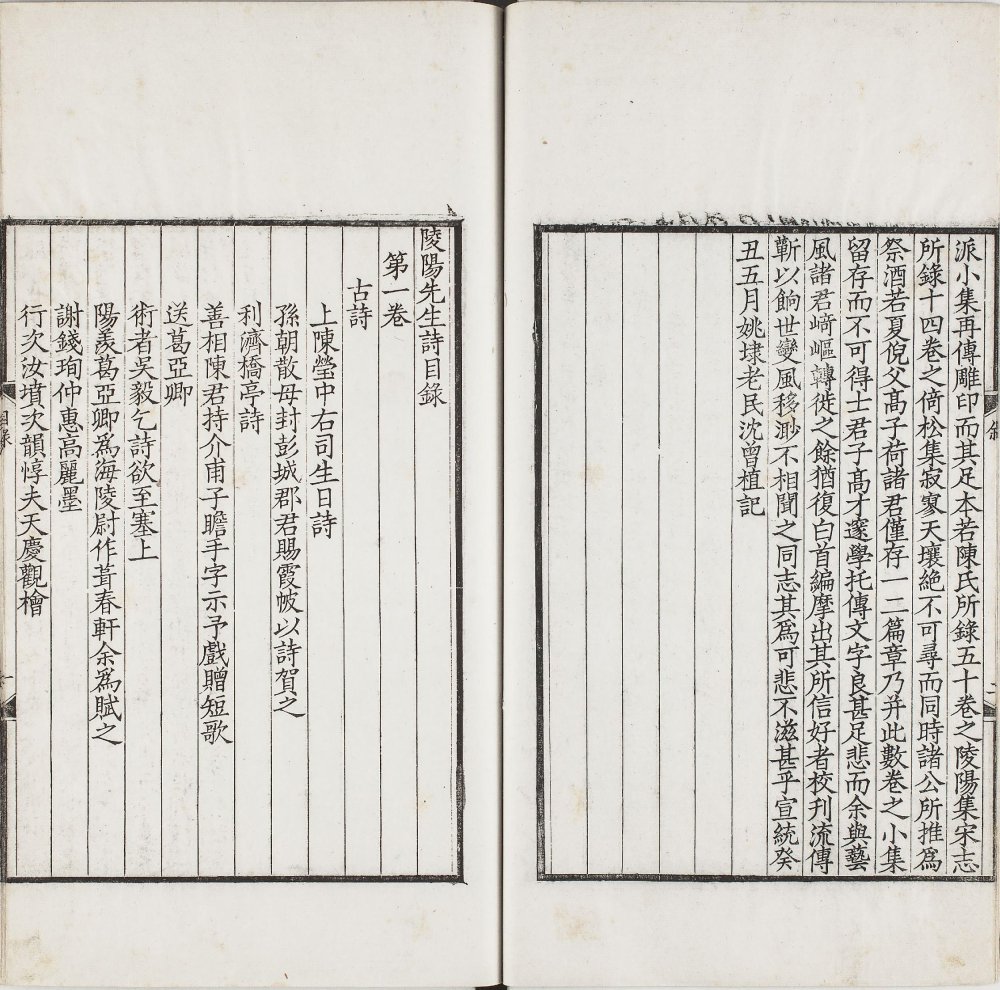 派小集再傳雕印而其足本若陳氏所錄五十卷之陵陽集宋志
所錄十四卷之倚松集寂寥天壤絶不可尋而同時諸公所推爲
祭酒若夏倪父髙子荷諸君僅存一二篇章乃并此數卷之小集
留存而不可得士君子髙才邃學托傳文字良甚足悲而余與藝
風諸君﨑嶇轉徙之餘猶復白首編摩出其所信好者校刊流傳
蘄以餉世變風移渺不相聞之同志其爲可悲不滋甚乎宣統癸
丑五月姚埭老民沈曾植記
敘
二
陵陽先生詩目錄
第一卷
古詩
上陳瑩中右司生日詩
孫朝散母封彭城郡君賜霞帔以詩賀之
利濟橋亭詩
善相陳君持介甫子瞻手字示予戲贈短歌
送葛亞卿
術者吳毅乞詩欲至塞上
陽羨葛亞卿爲海陵尉作葺春軒余爲賦之
謝錢珣仲惠高麗墨
行次汝墳次韻惇夫天慶觀檜
目錄
一